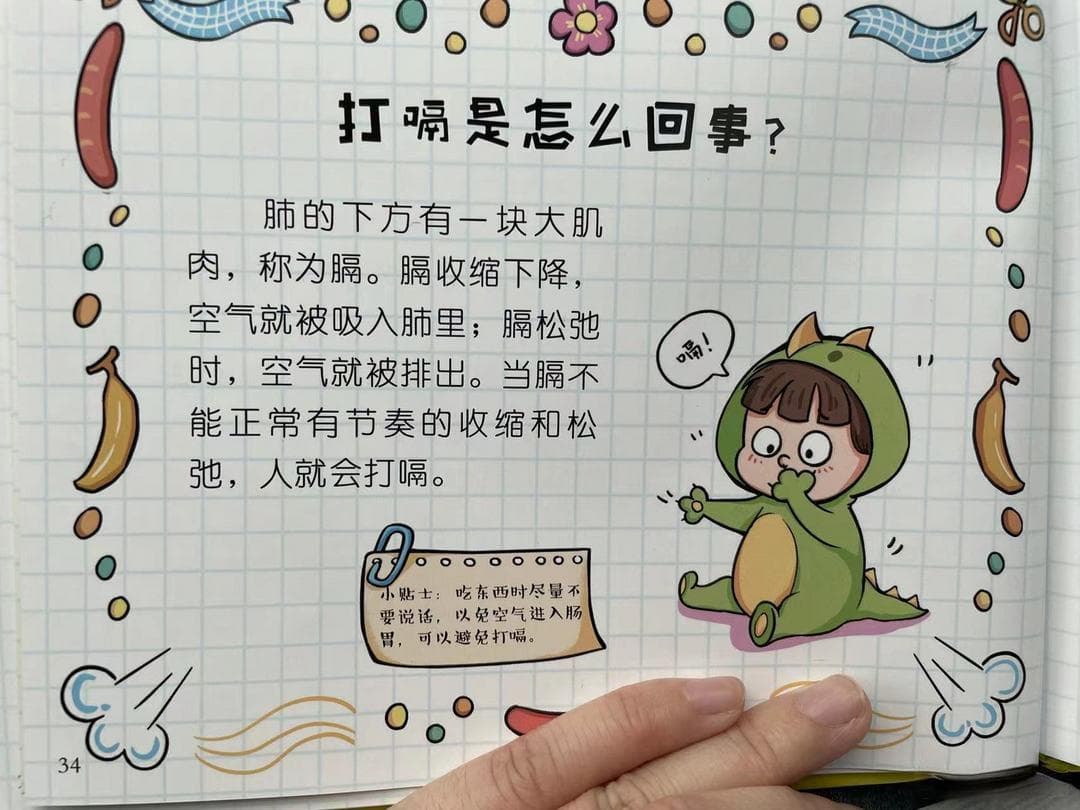 打嗝是怎么回事?
肺的下方有一块大肌
肉，称为膈。膈收缩下降，
空气就被吸入肺里；膈松弛
时，空气就被排出。当膈不
能正常有节奏的收缩和松
弛，人就会打嗝。
嗝!
小贴士：吃东西时尽量不
要说话，以免空气进入肠
胃，可以避免打嗝。
34